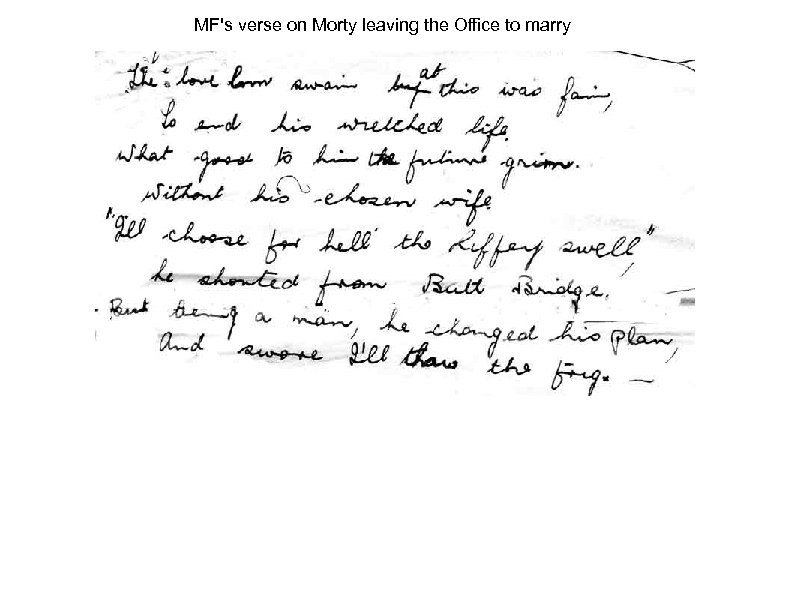 MF's verse on Morty leaving the Office to marry
The love lorn swain at this was fain,
To end his wretched life.
What good to him the future grim.
Without his chosen wife.
"I'll choose for hell the Liffey swell,"
he shouted from Butt Bridge.
But being a man, he changed his plan,
And swore I'll thaw the frig. —